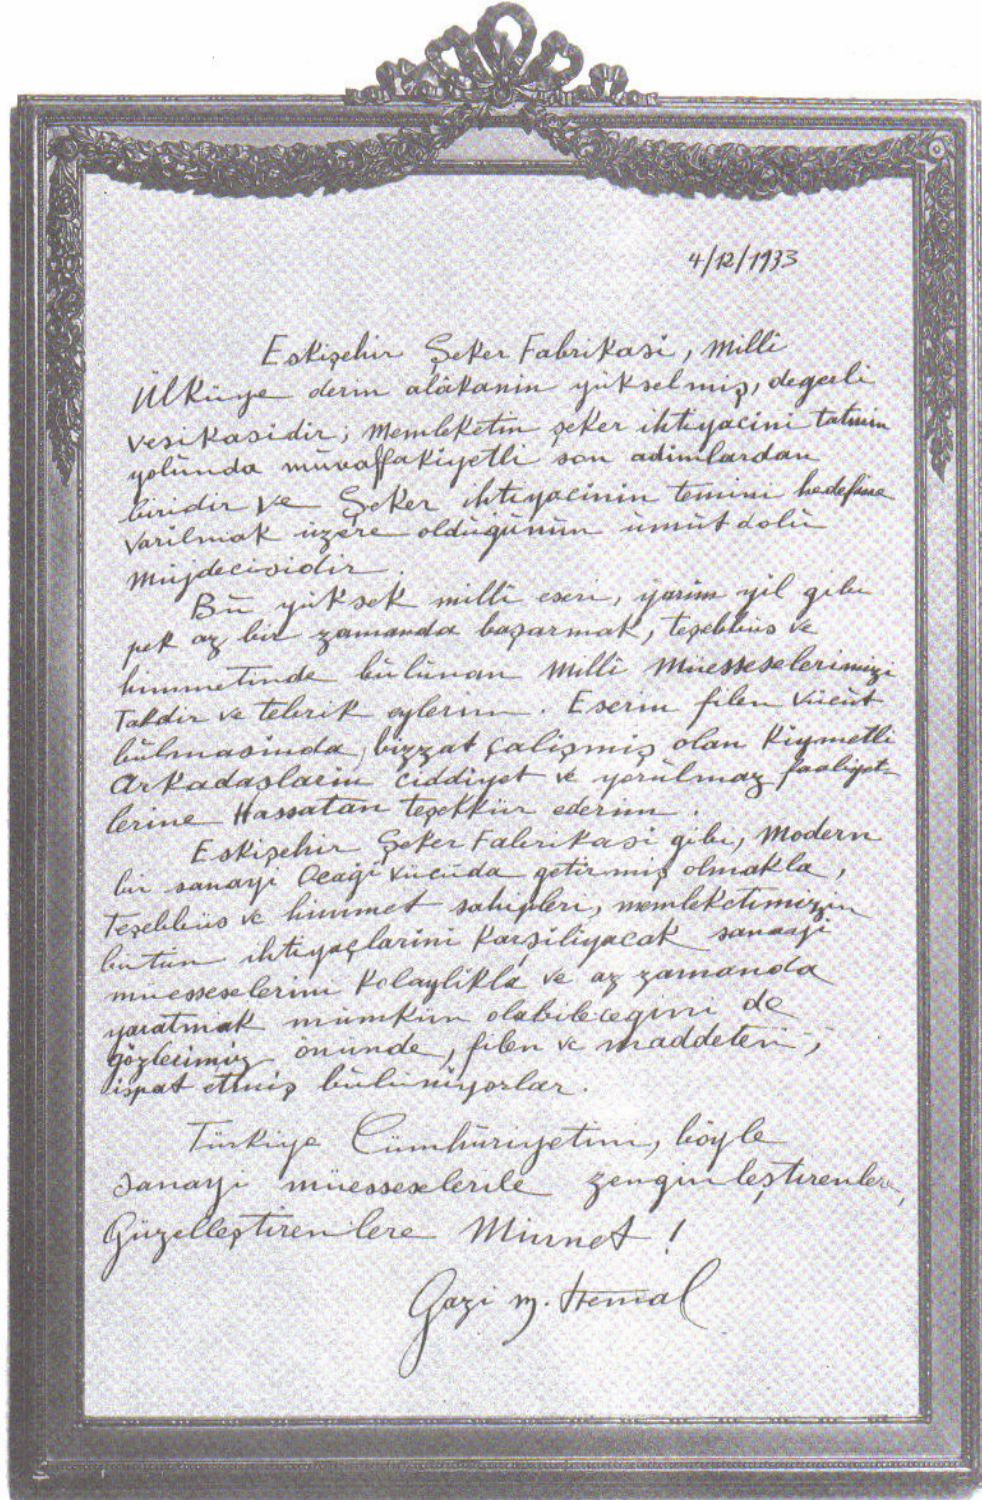 4/12/1933
Eskişehir Şeker Fabrikasi, milli
Ülküye derin alâkanin yükselmiş, değerli
vesikasidir; memleketin şeker ihtiyacini tatmin
yolunda muvaffakiyetli son adimlardan
biridir ve Şeker ihtiyacinin temini hedefine
varilmak üzere olduğunun ümüt dolu
müjdecisidir.
Bu yüksek milli eseri, yarim yil gibi
pek az bir zamanda başarmak, teşebbüs ve
himmetinde bulunan milli müesseselerimizi
Takdir ve tebrik eylerim. Eserin filen vücut
bulmasinda, bizzat çalişmiş olan kiymetli
Arkadaşlarin ciddiyet ve yorulmaz faaliyet-
lerine Hassatan teşekkür ederim.
Eskişehir Şeker Fabrikasi gibi, modern
bir sanayi Ocaği vücuda getirmiş olmakla,
Teşebbüs ve himmet sahipleri, memleketimizin
bütün ihtiyaçlarini karşiliyacak sanayi
müesseselerini kolaylikla ve az zamanda
yaratmak mümkün olabileceğini de
gözlerimiz önünde, filen ve maddeten,
ispat etmiş bulunuyorlar.
Türkiye Cümhuriyetini, böyle
sanayi müesseselerile zenginleştirenlere,
Güzelleştirenlere Minnet!
Gazi M. Kemal